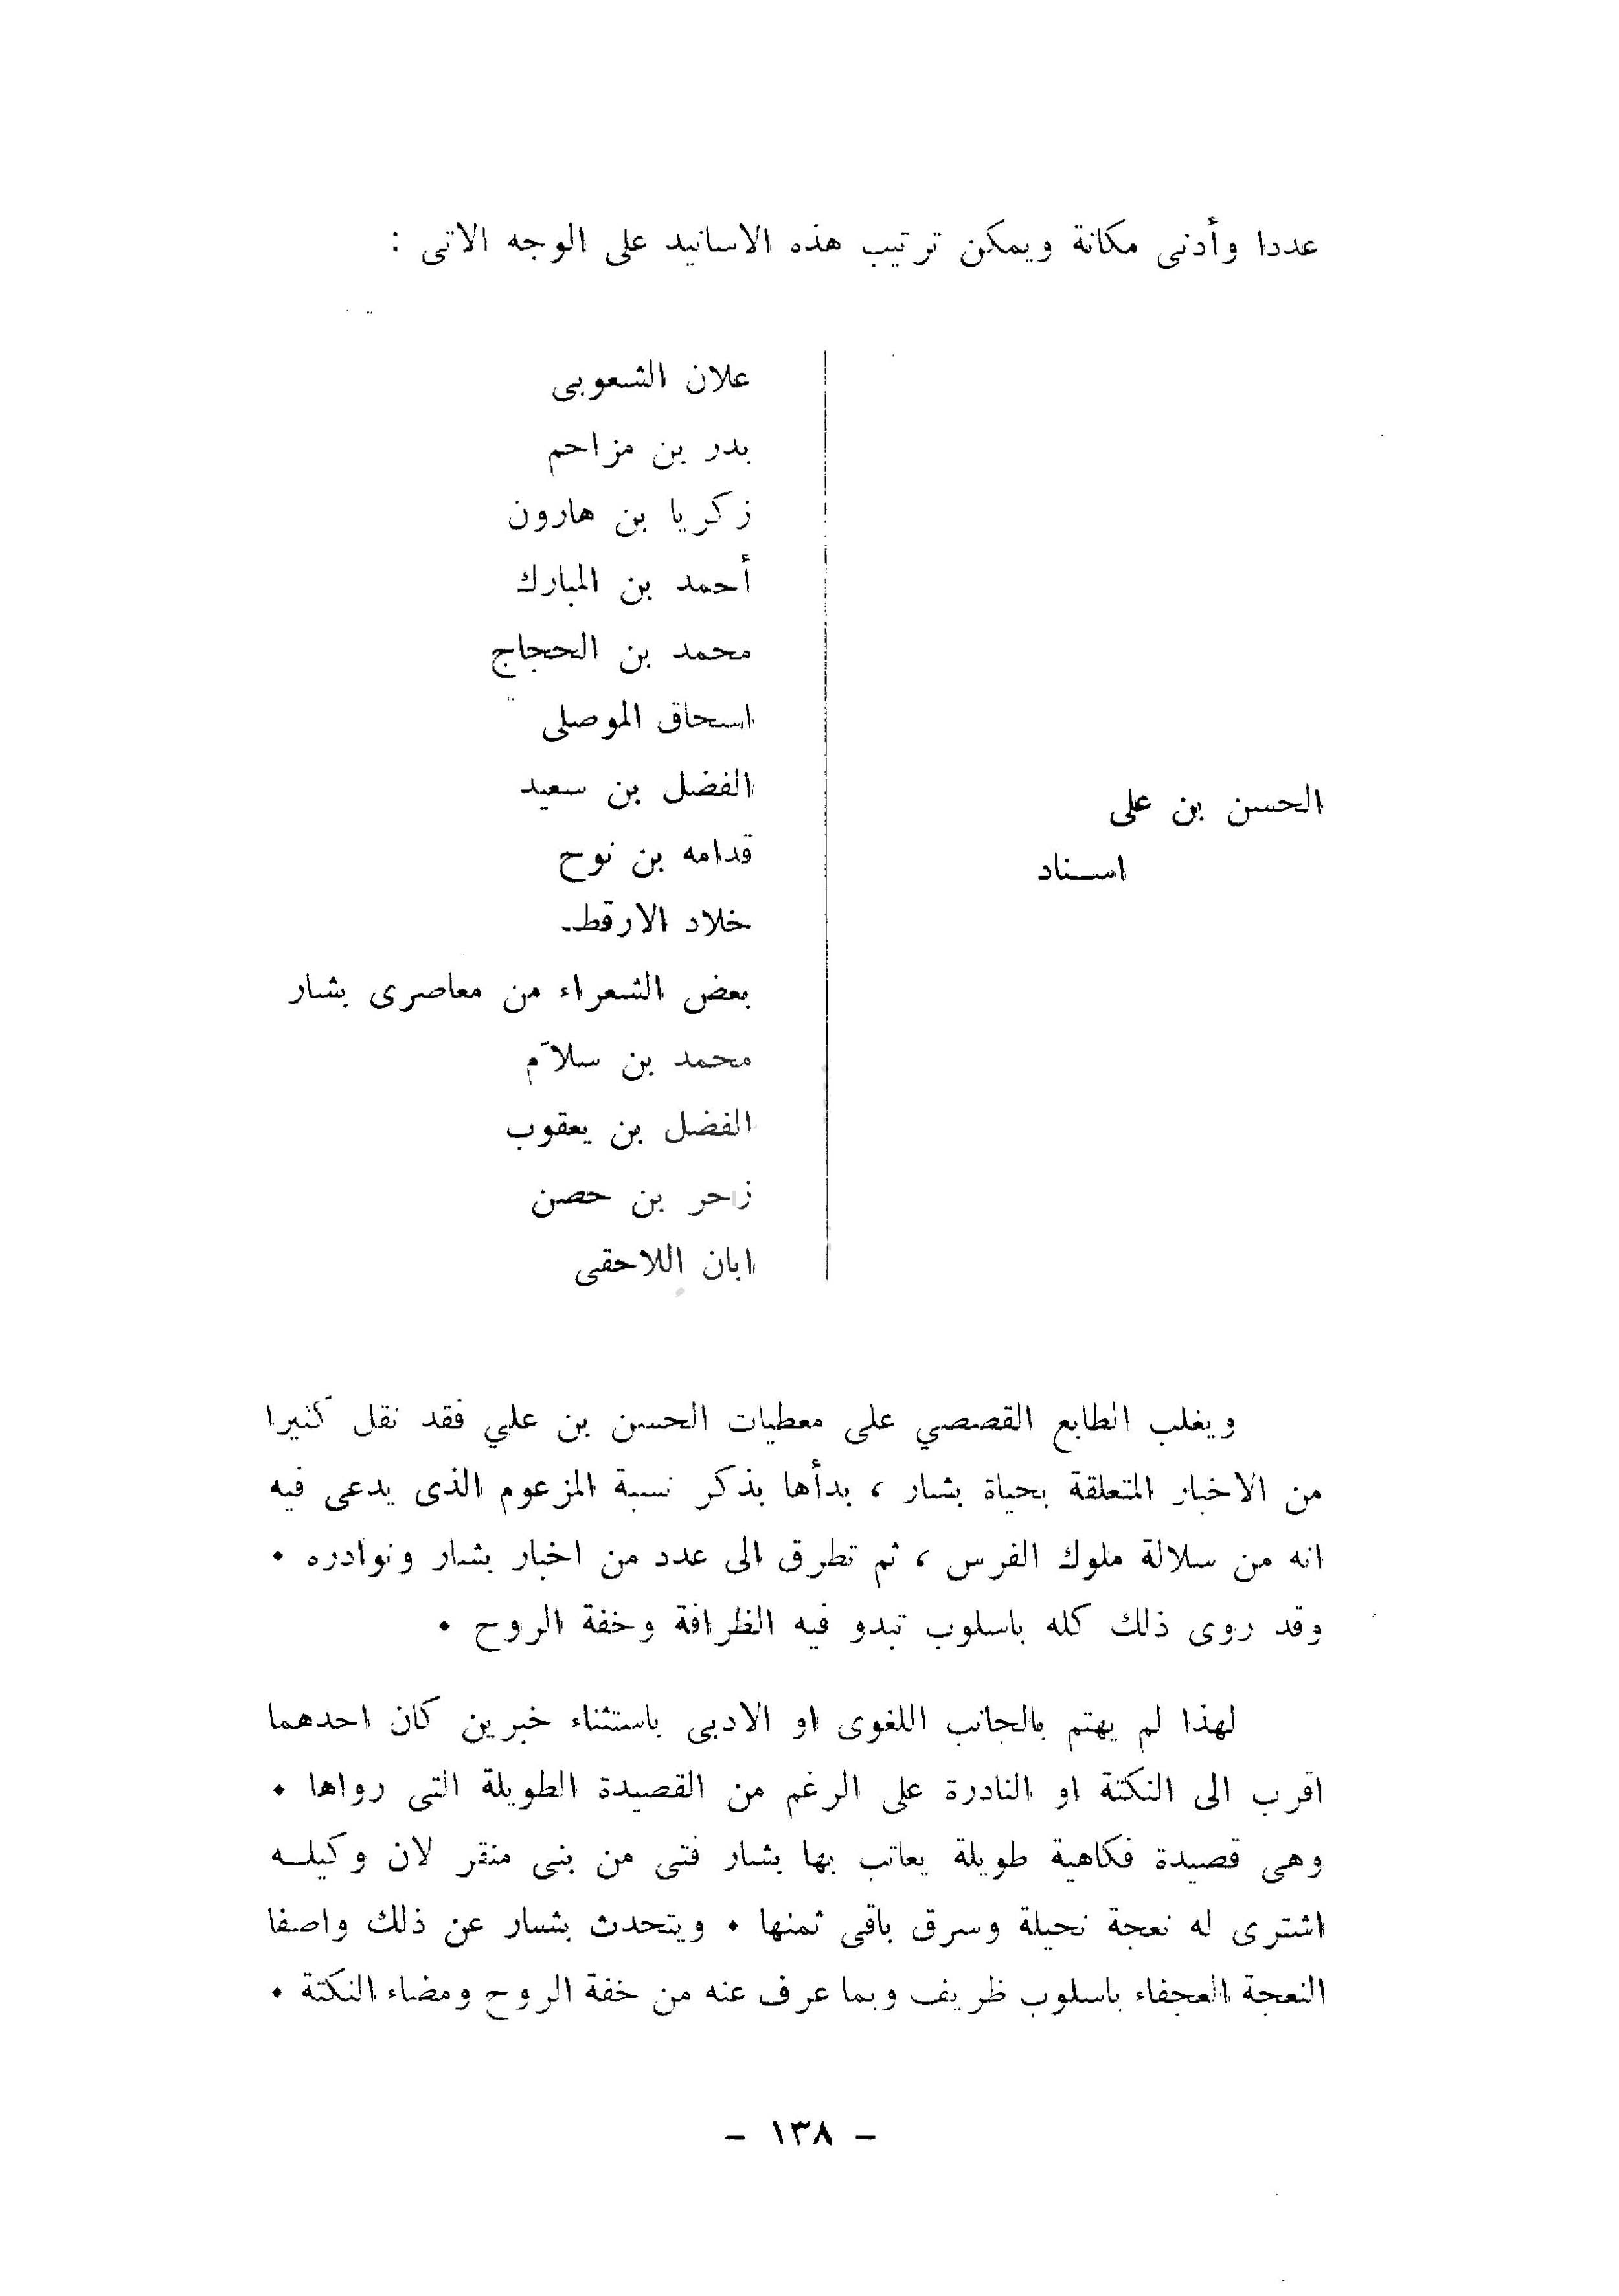 عددا وأدنى مكانة ويمكن ترتيب هذه الاسانيد على الوجه الاتى :
الحسن بن على
اسناد
علان الشعوبى
بدر بن مزاحم
زكريا بن هارون
أحمد بن المبارك
محمد بن الحجاج
اسحاق الموصلى
الفضل بن سعيد
قدامه بن نوح
خلاد الارقط
بعض الشعراء من معاصرى بشار
محمد بن سلاّم
الفضل بن يعقوب
زاحر بن حصن
ابان اللاحقى
ويغلب الطابع القصصي على معطيات الحسن بن علي فقد نقل كثيرا
من الاخبار المتعلقة بحياة بشار ، بدأها بذكر نسبة المزعوم الذى يدعى فيه
انه من سلالة ملوك الفرس ، ثم تطرق الى عدد من اخبار بشار ونوادره .
وقد روى ذلك كله باسلوب تبدو فيه الظرافة وخفة الروح .
لهذا لم يهتم بالجانب اللغوى او الادبى باستثناء خبرين كان احدهما
اقرب الى النكتة او النادرة على الرغم من القصيدة الطويلة التى رواها .
وهى قصيدة فكاهية طويلة يعاتب بها بشار فتى من بنى منقر لان وكيلـه
اشترى له نعجة نحيلة وسرق باقى ثمنها . ويتحدث بشار عن ذلك واصفا
النعجة العجفاء باسلوب ظريف وبما عرف عنه من خفة الروح ومضاء النكتة .
– ١٣٨ –